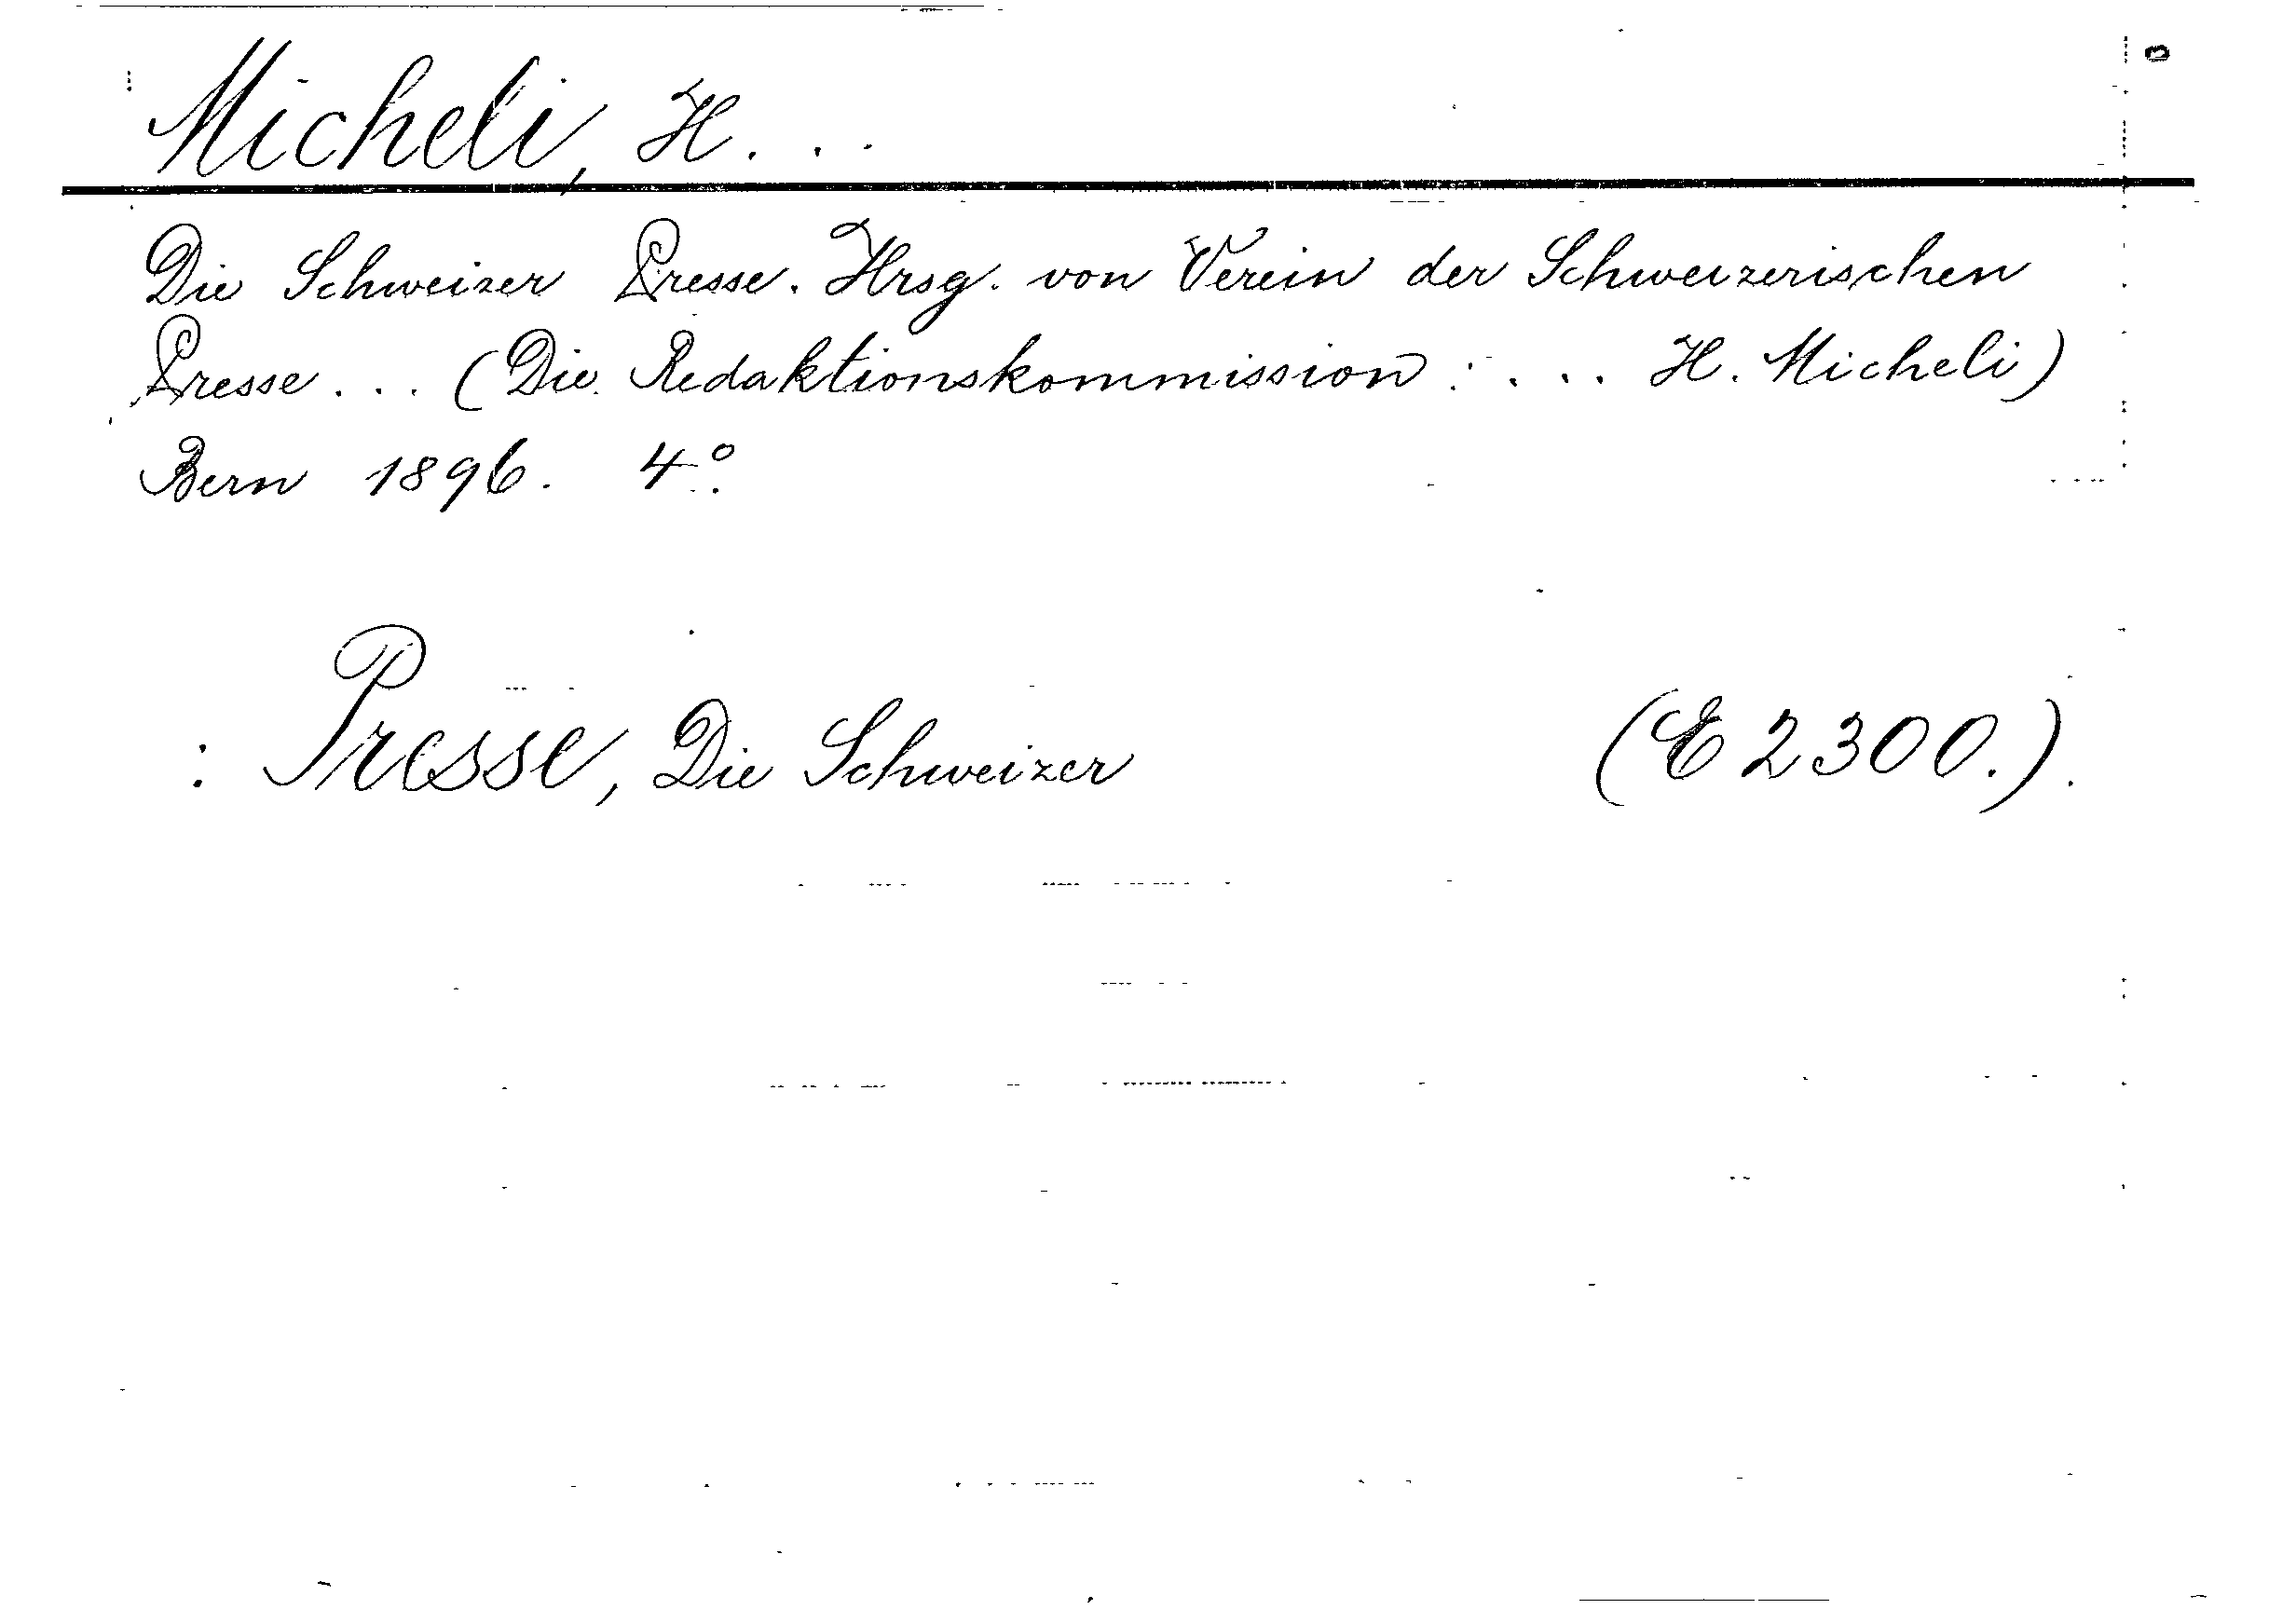 Micheli, H. . .
Die Schweizer Presse. Hrsg. von Verein der Schweizerischen
Presse . . . (Die Redaktionskommission : . . . H. Micheli)
Bern 1896. 4°.
: Presse, Die Schweizer (E 2300.).